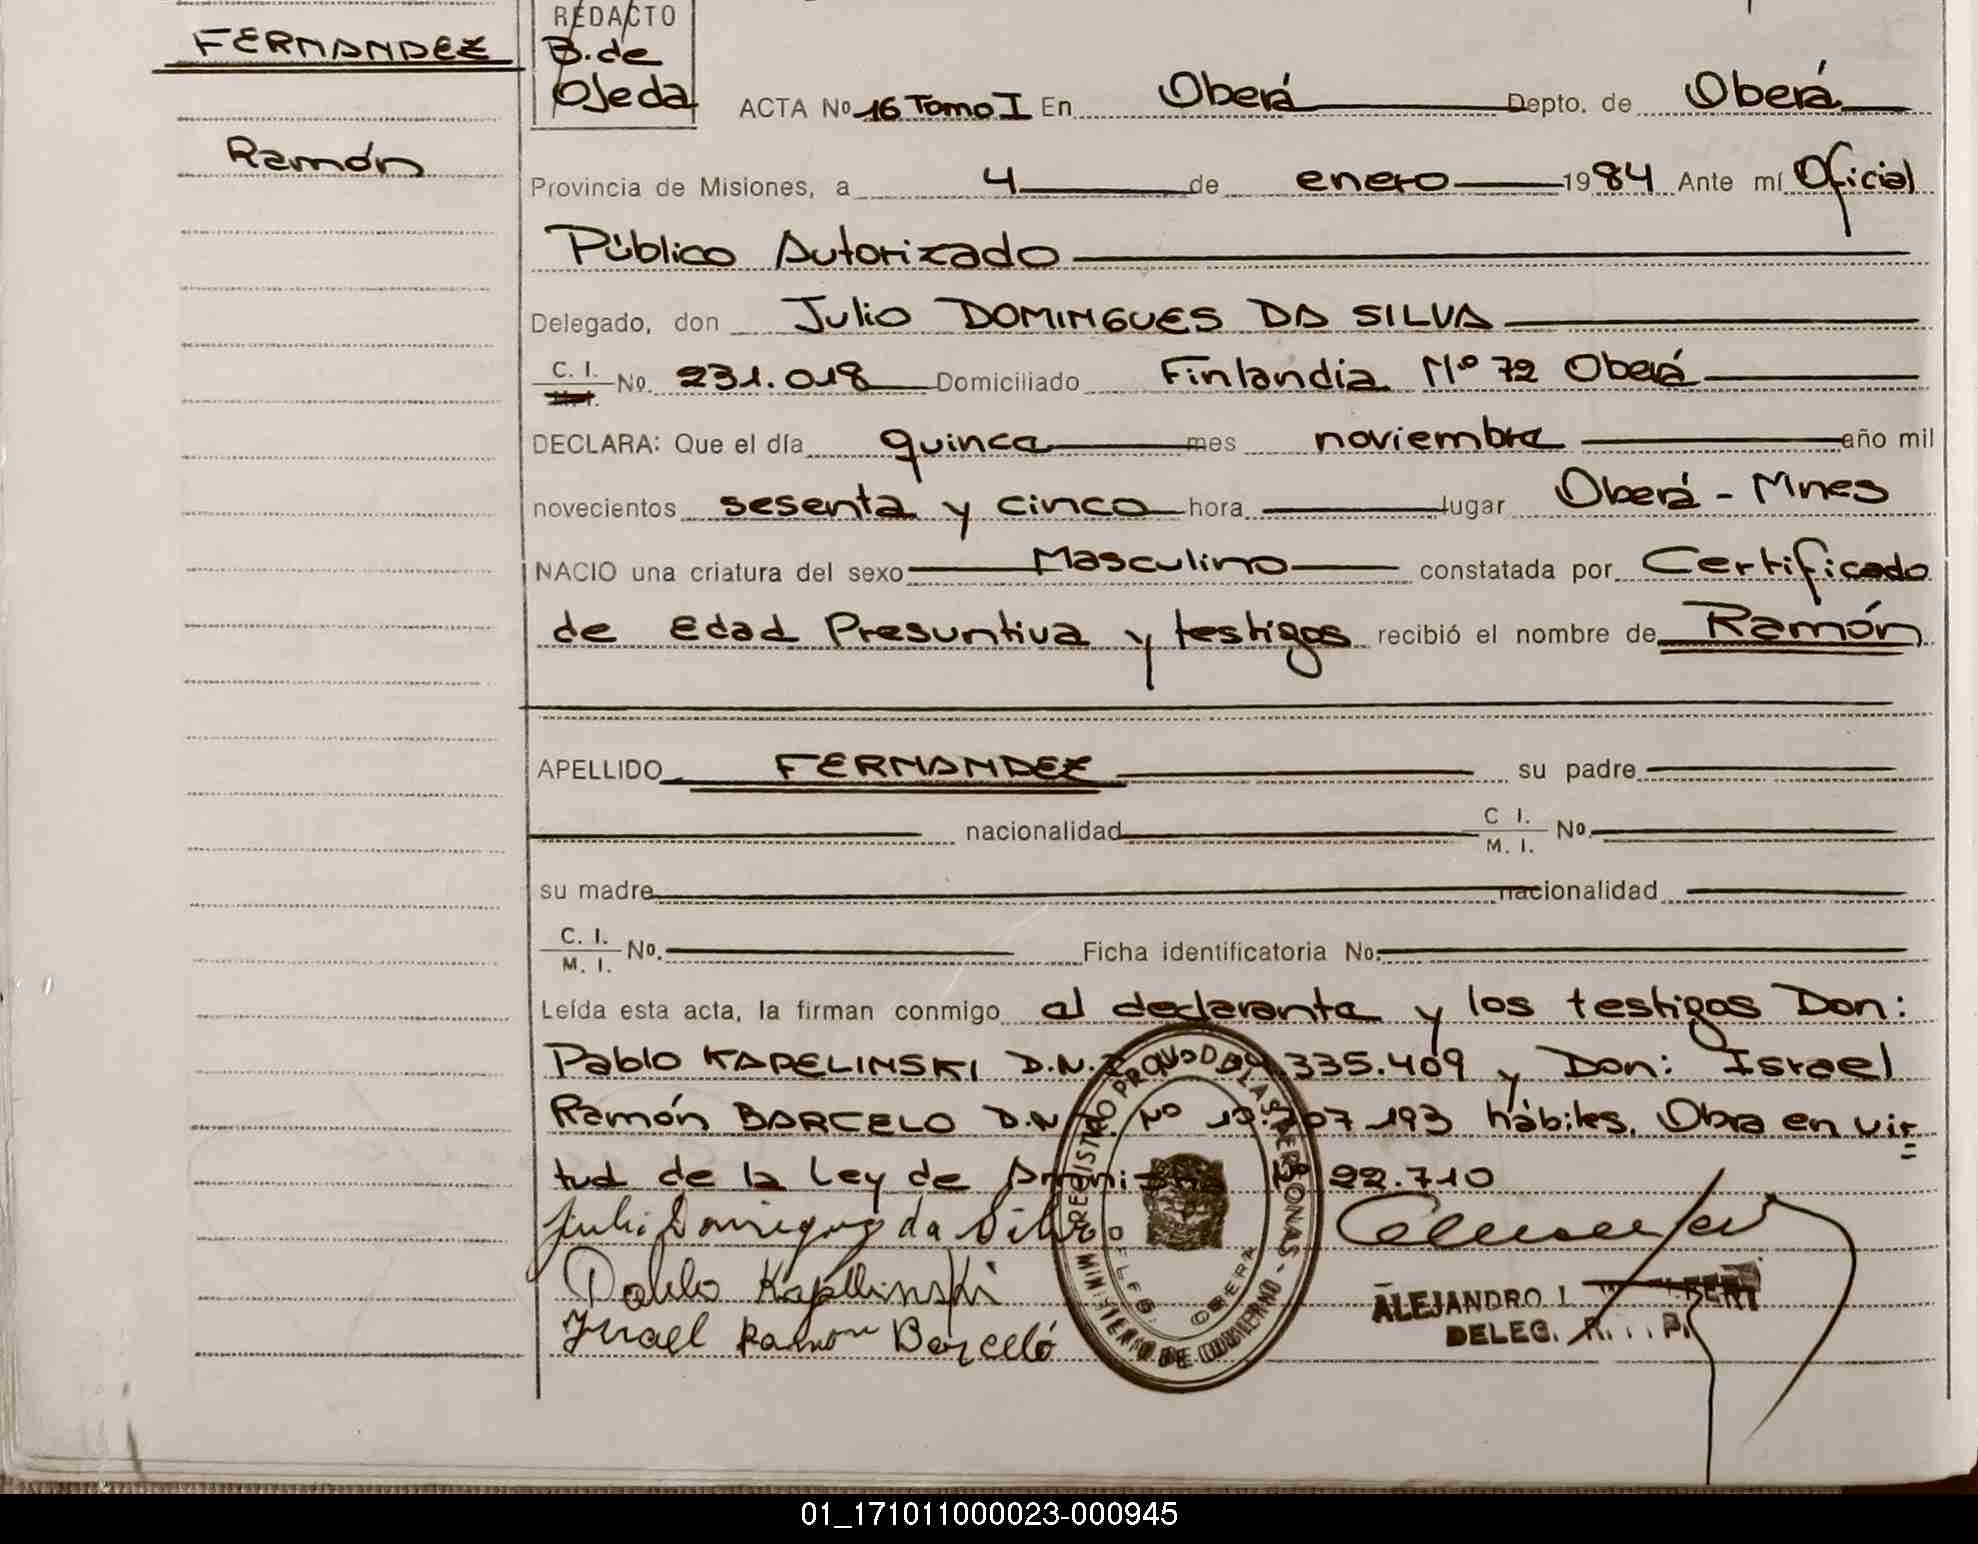 FERNANDEZ
Ramón
REDACTO
B. de
Ojeda
ACTA Nº 16 Tomo I En Oberá Depto. de Oberá
Provincia de Misiones, a 4 de enero 1984 Ante mí Oficial
Público Autorizado
Delegado, don Julio DOMINGUES DA SILVA
C. I. No. 231.018 Domiciliado Finlandia Nº 72 Oberá
DECLARA: Que el día quince mes noviembre año mil
novecientos sesenta y cinco hora lugar Oberá - Mnes
NACIO una criatura del sexo Masculino constatada por Certificado
de Edad Presuntiva y testigos recibió el nombre de Ramón
APELLIDO FERNANDEZ su padre
nacionalidad C I. M. I. No.
su madre nacionalidad
C. I. M. I. No. Ficha identificatoria No.
Leída esta acta, la firman conmigo el declarante y los testigos Don:
Pablo KAPELINSKI D.N. 335.409 y Don: Israel
Ramón BARCELO D.N Nº 193 hábiles. Obra en vir
tud de la Ley de 22.710
Julio Domingues da Silva
Pablo Kapellinski
Israel Ramón Barceló
REGISTRO PROV. DE LAS PERSONAS - MINISTERIO DE GOBIERNO
DELEG. OBERA
ALEJANDRO I.
DELEG.
01_171011000023-000945